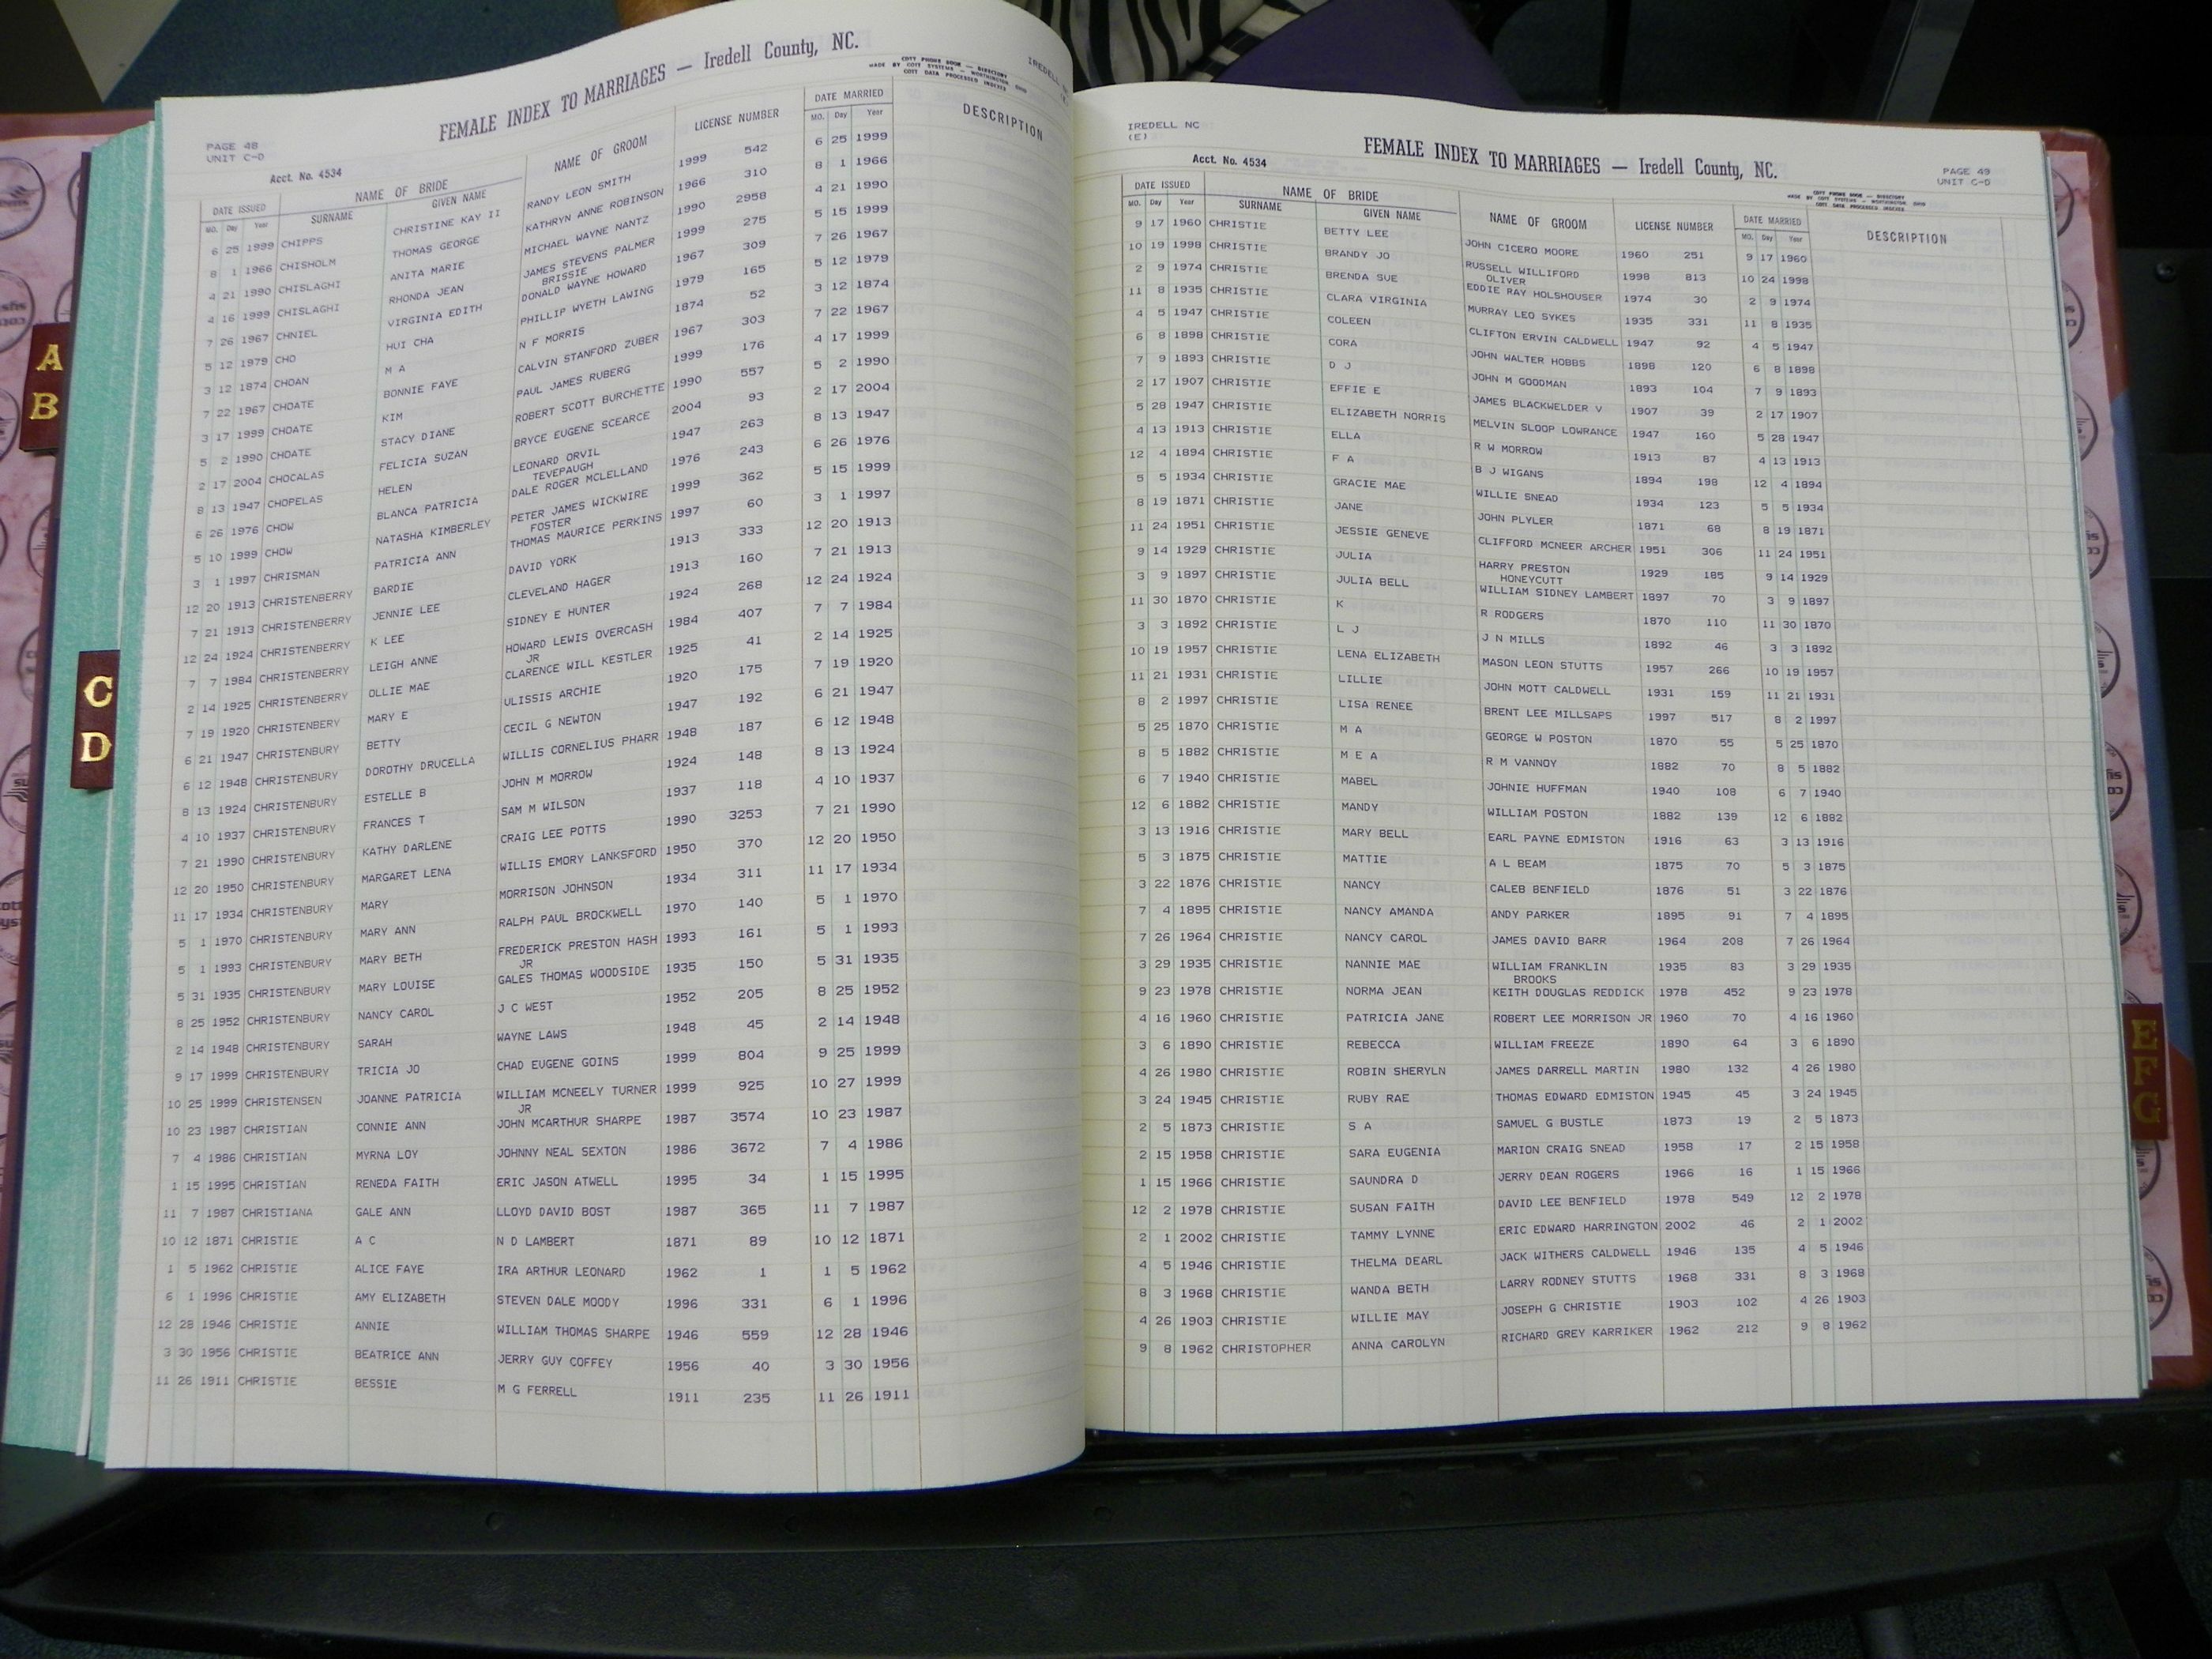 FEMALE INDEX TO MARRIAGES — Iredell County, NC.
PAGE 48
UNIT C-D
Acct. No. 4534
COTT PHONE BOOK — DIRECTORY
MADE BY COTT SYSTEMS — WORTHINGTON OHIO
COTT DATA PROCESSED INDEXES
DATE ISSUED NAME OF BRIDE NAME OF GROOM LICENSE NUMBER DATE MARRIED DESCRIPTION
MO. Day Year SURNAME GIVEN NAME MO. Day Year
6 25 1999 CHIPPS CHRISTINE KAY II RANDY LEON SMITH 1999 542 6 25 1999
8 1 1966 CHISHOLM THOMAS GEORGE KATHRYN ANNE ROBINSON 1966 310 8 1 1966
4 21 1990 CHISLAGHI ANITA MARIE MICHAEL WAYNE NANTZ 1990 2958 4 21 1990
4 16 1999 CHISLAGHI RHONDA JEAN JAMES STEVENS PALMER 1999 275 5 15 1999
BRISSIE
7 26 1967 CHNIEL VIRGINIA EDITH DONALD WAYNE HOWARD 1967 309 7 26 1967
5 12 1979 CHO HUI CHA PHILLIP WYETH LAWING 1979 165 5 12 1979
3 12 1874 CHOAN M A N F MORRIS 1874 52 3 12 1874
7 22 1967 CHOATE BONNIE FAYE CALVIN STANFORD ZUBER 1967 303 7 22 1967
3 17 1999 CHOATE KIM PAUL JAMES RUBERG 1999 176 4 17 1999
5 2 1990 CHOATE STACY DIANE ROBERT SCOTT BURCHETTE 1990 557 5 2 1990
2 17 2004 CHOCALAS FELICIA SUZAN BRYCE EUGENE SCEARCE 2004 93 2 17 2004
8 13 1947 CHOPELAS HELEN LEONARD ORVIL 1947 263 8 13 1947
TEVEPAUGH
6 26 1976 CHOW BLANCA PATRICIA DALE ROGER MCLELLAND 1976 243 6 26 1976
5 10 1999 CHOW NATASHA KIMBERLEY PETER JAMES WICKWIRE 1999 362 5 15 1999
FOSTER
3 1 1997 CHRISMAN PATRICIA ANN THOMAS MAURICE PERKINS 1997 60 3 1 1997
12 20 1913 CHRISTENBERRY BARDIE DAVID YORK 1913 333 12 20 1913
7 21 1913 CHRISTENBERRY JENNIE LEE CLEVELAND HAGER 1913 160 7 21 1913
12 24 1924 CHRISTENBERRY K LEE SIDNEY E HUNTER 1924 268 12 24 1924
7 7 1984 CHRISTENBERRY LEIGH ANNE HOWARD LEWIS OVERCASH 1984 407 7 7 1984
JR
2 14 1925 CHRISTENBERRY OLLIE MAE CLARENCE WILL KESTLER 1925 41 2 14 1925
7 19 1920 CHRISTENBERY MARY E ULISSIS ARCHIE 1920 175 7 19 1920
6 21 1947 CHRISTENBURY BETTY CECIL G NEWTON 1947 192 6 21 1947
6 12 1948 CHRISTENBURY DOROTHY DRUCELLA WILLIS CORNELIUS PHARR 1948 187 6 12 1948
8 13 1924 CHRISTENBURY ESTELLE B JOHN M MORROW 1924 148 8 13 1924
4 10 1937 CHRISTENBURY FRANCES T SAM M WILSON 1937 118 4 10 1937
7 21 1990 CHRISTENBURY KATHY DARLENE CRAIG LEE POTTS 1990 3253 7 21 1990
12 20 1950 CHRISTENBURY MARGARET LENA WILLIS EMORY LANKSFORD 1950 370 12 20 1950
11 17 1934 CHRISTENBURY MARY MORRISON JOHNSON 1934 311 11 17 1934
5 1 1970 CHRISTENBURY MARY ANN RALPH PAUL BROCKWELL 1970 140 5 1 1970
5 1 1993 CHRISTENBURY MARY BETH FREDERICK PRESTON HASH 1993 161 5 1 1993
JR
5 31 1935 CHRISTENBURY MARY LOUISE GALES THOMAS WOODSIDE 1935 150 5 31 1935
8 25 1952 CHRISTENBURY NANCY CAROL J C WEST 1952 205 8 25 1952
2 14 1948 CHRISTENBURY SARAH WAYNE LAWS 1948 45 2 14 1948
9 17 1999 CHRISTENBURY TRICIA JO CHAD EUGENE GOINS 1999 804 9 25 1999
10 25 1999 CHRISTENSEN JOANNE PATRICIA WILLIAM MCNEELY TURNER 1999 925 10 27 1999
JR
10 23 1987 CHRISTIAN CONNIE ANN JOHN MCARTHUR SHARPE 1987 3574 10 23 1987
7 4 1986 CHRISTIAN MYRNA LOY JOHNNY NEAL SEXTON 1986 3672 7 4 1986
1 15 1995 CHRISTIAN RENEDA FAITH ERIC JASON ATWELL 1995 34 1 15 1995
11 7 1987 CHRISTIANA GALE ANN LLOYD DAVID BOST 1987 365 11 7 1987
10 12 1871 CHRISTIE A C N D LAMBERT 1871 89 10 12 1871
1 5 1962 CHRISTIE ALICE FAYE IRA ARTHUR LEONARD 1962 1 1 5 1962
6 1 1996 CHRISTIE AMY ELIZABETH STEVEN DALE MOODY 1996 331 6 1 1996
12 28 1946 CHRISTIE ANNIE WILLIAM THOMAS SHARPE 1946 559 12 28 1946
3 30 1956 CHRISTIE BEATRICE ANN JERRY GUY COFFEY 1956 40 3 30 1956
11 26 1911 CHRISTIE BESSIE M G FERRELL 1911 235 11 26 1911
A
B
C
D
IREDELL NC
(E)
FEMALE INDEX TO MARRIAGES — Iredell County, NC.
PAGE 49
UNIT C-D
Acct. No. 4534
COTT PHONE BOOK — DIRECTORY
MADE BY COTT SYSTEMS — WORTHINGTON OHIO
COTT DATA PROCESSED INDEXES
DATE ISSUED NAME OF BRIDE NAME OF GROOM LICENSE NUMBER DATE MARRIED DESCRIPTION
MO. Day Year SURNAME GIVEN NAME MO. Day Year
9 17 1960 CHRISTIE BETTY LEE JOHN CICERO MOORE 1960 251 9 17 1960
10 19 1998 CHRISTIE BRANDY JO RUSSELL WILLIFORD 1998 813 10 24 1998
OLIVER
2 9 1974 CHRISTIE BRENDA SUE EDDIE RAY HOLSHOUSER 1974 30 2 9 1974
11 8 1935 CHRISTIE CLARA VIRGINIA MURRAY LEO SYKES 1935 331 11 8 1935
4 5 1947 CHRISTIE COLEEN CLIFTON ERVIN CALDWELL 1947 92 4 5 1947
6 8 1898 CHRISTIE CORA JOHN WALTER HOBBS 1898 120 6 8 1898
7 9 1893 CHRISTIE D J JOHN M GOODMAN 1893 104 7 9 1893
2 17 1907 CHRISTIE EFFIE E JAMES BLACKWELDER V 1907 39 2 17 1907
5 28 1947 CHRISTIE ELIZABETH NORRIS MELVIN SLOOP LOWRANCE 1947 160 5 28 1947
4 13 1913 CHRISTIE ELLA R W MORROW 1913 87 4 13 1913
12 4 1894 CHRISTIE F A B J WIGANS 1894 198 12 4 1894
5 5 1934 CHRISTIE GRACIE MAE WILLIE SNEAD 1934 123 5 5 1934
8 19 1871 CHRISTIE JANE JOHN PLYLER 1871 68 8 19 1871
11 24 1951 CHRISTIE JESSIE GENEVE CLIFFORD MCNEER ARCHER 1951 306 11 24 1951
9 14 1929 CHRISTIE JULIA HARRY PRESTON 1929 185 9 14 1929
HONEYCUTT
3 9 1897 CHRISTIE JULIA BELL WILLIAM SIDNEY LAMBERT 1897 70 3 9 1897
11 30 1870 CHRISTIE K R RODGERS 1870 110 11 30 1870
3 3 1892 CHRISTIE L J J N MILLS 1892 46 3 3 1892
10 19 1957 CHRISTIE LENA ELIZABETH MASON LEON STUTTS 1957 266 10 19 1957
11 21 1931 CHRISTIE LILLIE JOHN MOTT CALDWELL 1931 159 11 21 1931
8 2 1997 CHRISTIE LISA RENEE BRENT LEE MILLSAPS 1997 517 8 2 1997
5 25 1870 CHRISTIE M A GEORGE W POSTON 1870 55 5 25 1870
8 5 1882 CHRISTIE M E A R M VANNOY 1882 70 8 5 1882
6 7 1940 CHRISTIE MABEL JOHNIE HUFFMAN 1940 108 6 7 1940
12 6 1882 CHRISTIE MANDY WILLIAM POSTON 1882 139 12 6 1882
3 13 1916 CHRISTIE MARY BELL EARL PAYNE EDMISTON 1916 63 3 13 1916
5 3 1875 CHRISTIE MATTIE A L BEAM 1875 70 5 3 1875
3 22 1876 CHRISTIE NANCY CALEB BENFIELD 1876 51 3 22 1876
7 4 1895 CHRISTIE NANCY AMANDA ANDY PARKER 1895 91 7 4 1895
7 26 1964 CHRISTIE NANCY CAROL JAMES DAVID BARR 1964 208 7 26 1964
3 29 1935 CHRISTIE NANNIE MAE WILLIAM FRANKLIN 1935 83 3 29 1935
BROOKS
9 23 1978 CHRISTIE NORMA JEAN KEITH DOUGLAS REDDICK 1978 452 9 23 1978
4 16 1960 CHRISTIE PATRICIA JANE ROBERT LEE MORRISON JR 1960 70 4 16 1960
3 6 1890 CHRISTIE REBECCA WILLIAM FREEZE 1890 64 3 6 1890
4 26 1980 CHRISTIE ROBIN SHERYLN JAMES DARRELL MARTIN 1980 132 4 26 1980
3 24 1945 CHRISTIE RUBY RAE THOMAS EDWARD EDMISTON 1945 45 3 24 1945
2 5 1873 CHRISTIE S A SAMUEL G BUSTLE 1873 19 2 5 1873
2 15 1958 CHRISTIE SARA EUGENIA MARION CRAIG SNEAD 1958 17 2 15 1958
1 15 1966 CHRISTIE SAUNDRA D JERRY DEAN ROGERS 1966 16 1 15 1966
12 2 1978 CHRISTIE SUSAN FAITH DAVID LEE BENFIELD 1978 549 12 2 1978
2 1 2002 CHRISTIE TAMMY LYNNE ERIC EDWARD HARRINGTON 2002 46 2 1 2002
4 5 1946 CHRISTIE THELMA DEARL JACK WITHERS CALDWELL 1946 135 4 5 1946
8 3 1968 CHRISTIE WANDA BETH LARRY RODNEY STUTTS 1968 331 8 3 1968
4 26 1903 CHRISTIE WILLIE MAY JOSEPH G CHRISTIE 1903 102 4 26 1903
9 8 1962 CHRISTOPHER ANNA CAROLYN RICHARD GREY KARRIKER 1962 212 9 8 1962
E
F
G